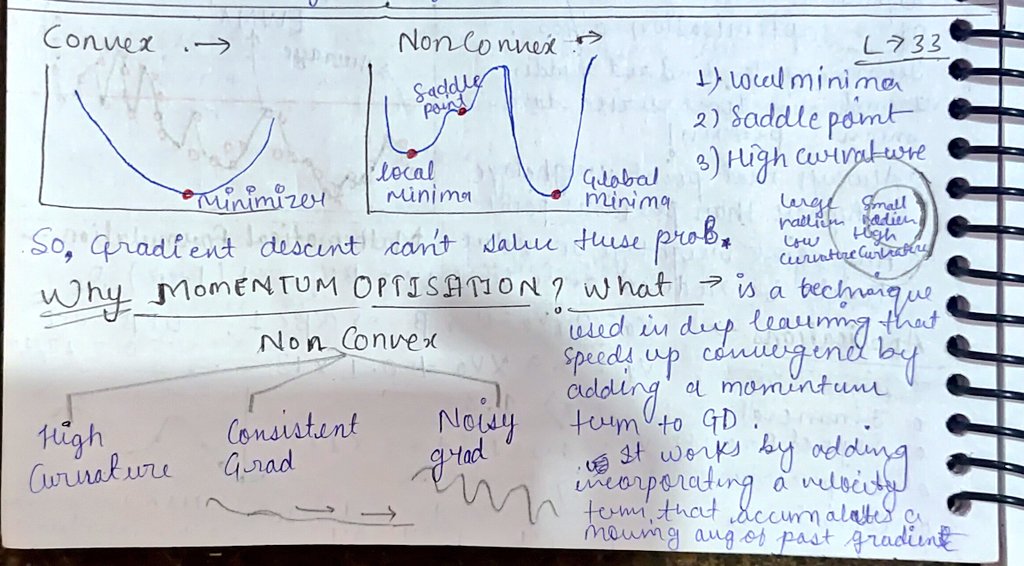 Convex .→
Non Convex →
L → 33
Saddle
point
local
minima
Global
minima
Minimizer
1) Local minima
2) Saddle point
3) High Curvature
large
radium
low
curvature
Small
radium
High
Curvature
So, Gradient descent can't solve these prob.
Why MOMENTUM OPTISATION? What → is a technique
used in deep learning that
speeds up convergence by
adding a momentum
term to GD.
It works by adding
incorporating a velocity
term that accumalates a
moving avg of past gradient
Non Convex
High
Curvature
Consistent
Grad
Noisy
grad